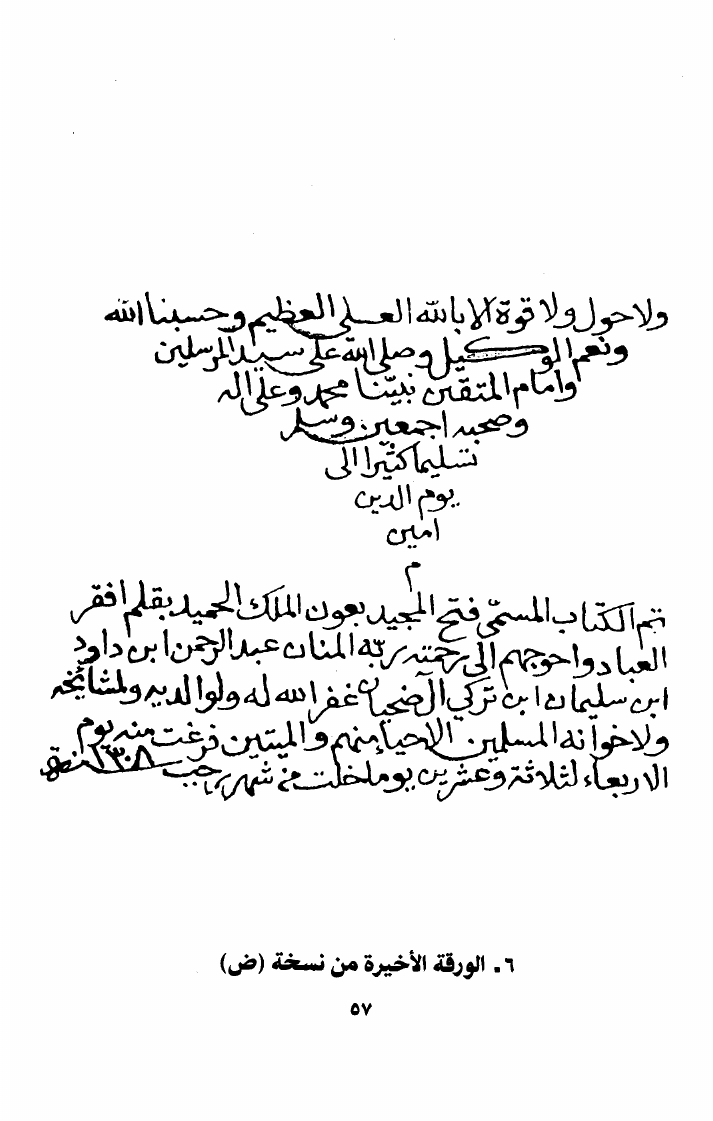 ولا حول ولا قوة الا بالله العلي العظيم وحسبنا الله
ونعم الوكيل وصلى الله على سيد المرسلين
وامام المتقين نبيّنا محمد وعلى اله
وصحبه اجمعين وسلم
تسليما كثيرا الى
يوم الدين
امين
م
تم الكتاب المسمّى فتح المجيد بعون الملك الحميد بقلم افقر
العباد واحوجهم الى رحمته ربّه المنان عبد الرحمن ابن داود
ابن سليمان ابن تركي آل ضحيان غفر الله له ولوالديه ولمشائخه
ولاخوانه المسلمين الاحياء منهم والميتين فرغت منه يوم
الاربعاء لثلاثة وعشرين يوما خلت من شهر رجب ١٣٠٨
٦. الورقة الأخيرة من نسخة (ض)
٥٧